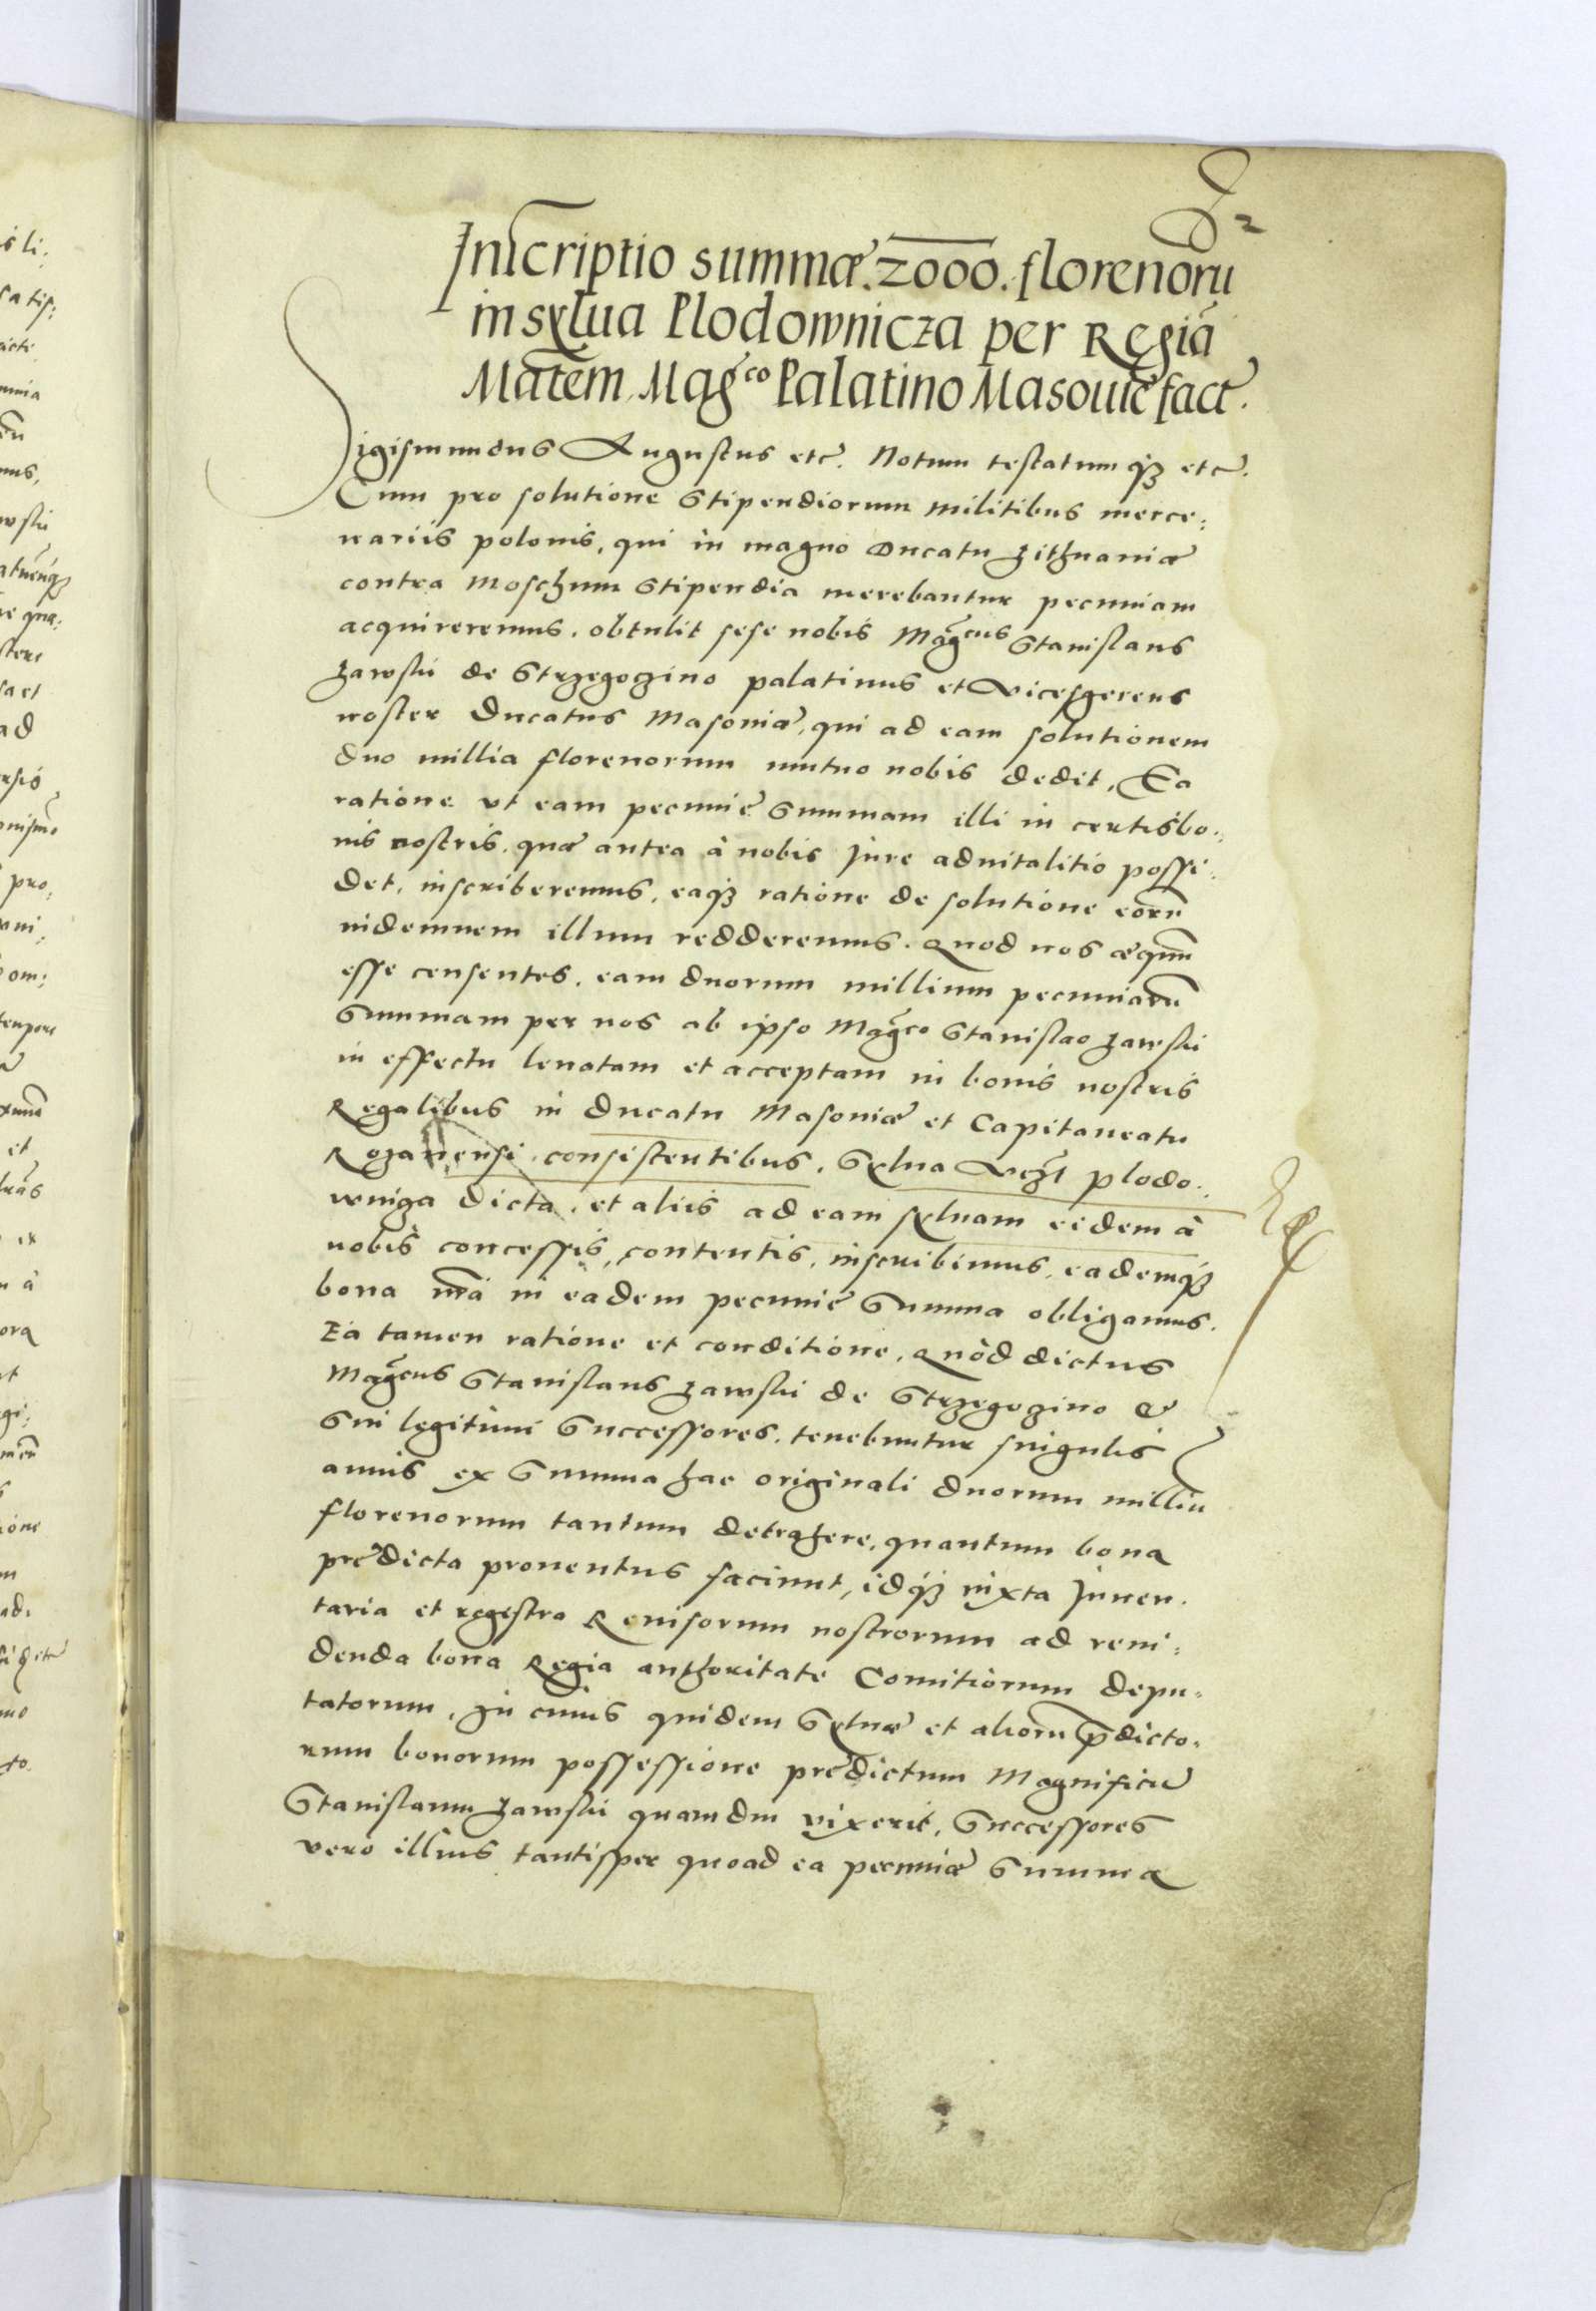 2
Inscriptio summæ. 2000. florenorũ
in sylua Plodownicza per Regiã
Matem̃. Mag̃co Palatino Masouię fact̃.
Sigismundus Augustus etc̃. Notum testatumq̃ etc̃.
Cum pro solutione Stipendiorum militibus merce:
nariis polonis, qui in magno Ducatu Lithuaniæ
contra Moschum Stipendia merebantur pecuniam
acquireremus, obtulit sese nobis Mag̃cus Stanislaus
Lawski de Strzegoczino palatinus et Vicesgerens
noster Ducatus Masouiæ, qui ad eam solutionem
duo millia florenorum mutuo nobis dedit, Ea
ratione vt eam pecunię Summam illi in certis bo:
nis nostris, quæ antea à nobis Jure aduitalitio possi:
det, inscriberemus, eaq̃ ratione de solutione eorũ
indemnem illum redderemus. Quod nos æquũ
esse censentes, eam duorum millium pecuniarũ
Summam per nos ab ipso Mag̃co Stanislao Lawski
in effectu leuatam et acceptam in bonis nostris
Regalibus in Ducatu Masouiæ et Capitaneatu
Rozanensi consistentibus, Sylua Vczt̃ plodo:
wniza dicta, et aliis ad eam syluam eidem à
nobis concessis, contentis, inscribimus, eademq̃
bona nr̃a in eadem pecunię Summa obligamus.
Ea tamen ratione et conditione, Quòd dictus
Mag̃cus Stanislaus Lawski de Strzegozino &
Sui legitimi Successores, tenebuntur singulis
annis ex Summa hac originali duorum milliũ
florenorum tantum detrahere, quantum bona
prędicta prouentus faciunt, idq̃ iuxta Inuen:
taria et registra Reuisorum nostrorum ad reui:
denda bona Regia authoritate Comitiorum depu:
tatorum, In cuius quidem Syluæ et aliorũ p̃dicto:
rum bonorum possessione prędictum Magnificũ
Stanislaum Lawski quamdiu vixerit, Successores
vero illius tantisper quoad ea pecuniæ Summa